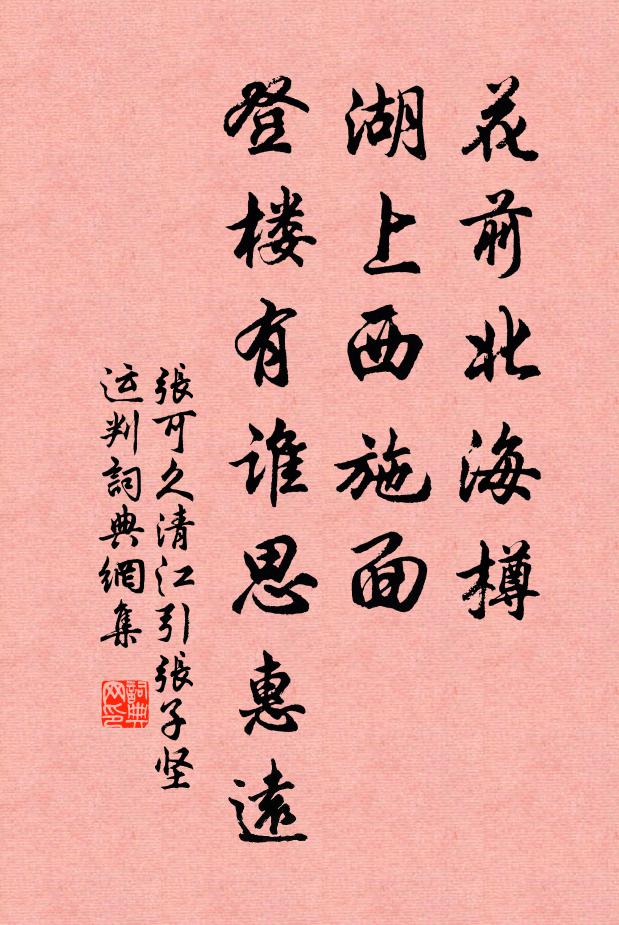 花前北海樽
湖上西施面
登楼有谁思惠遠
張可久清江引張子坚
运判詞典網集
詞典网印